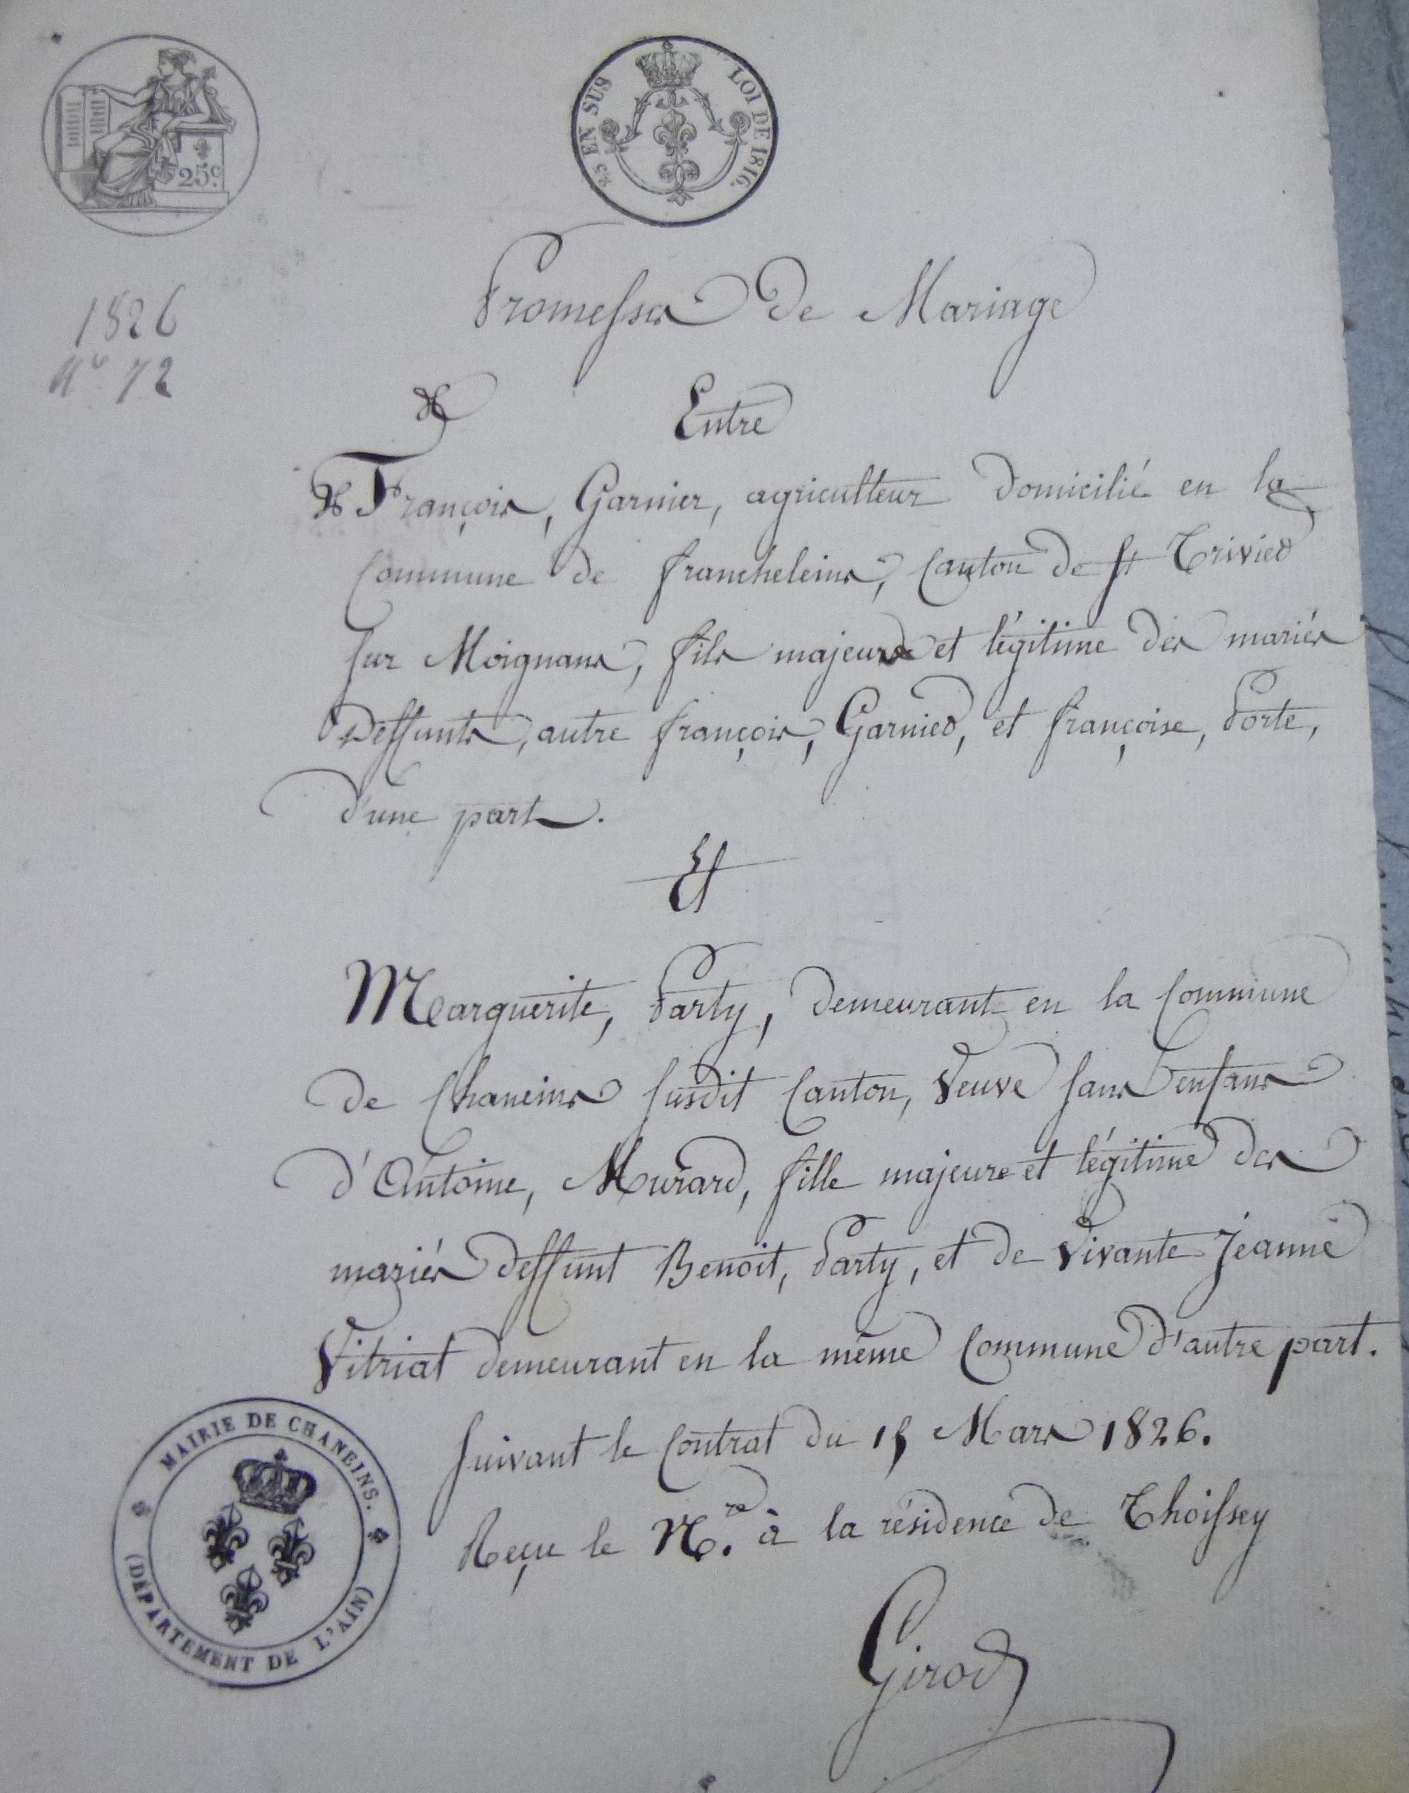 25 EN SUS
LOI DE 1816.
25c.
1826
N.o 72
Promesse de Mariage
Entre
François, Garnier, agriculteur domicilié en la
Commune de francheleins, Canton de St Trivier
sur Moignans, fils majeur et légitime des mariés
deffunts, autre françois, Garnier, et françoise, Porte,
d'une part.
Et
Marguerite, Party, demeurant en la Commune
de Chaneins susdit Canton, Veuve sans enfans
d'Antoine, Murard, fille majeure et légitime des
mariés deffunt Benoit, Party, et de Vivante Jeanne
Vitriat demeurant en la même Commune d'autre part.
suivant le Contrat du 15 Mars 1826.
Reçu le N.re à la résidence de Thoissey
Girod
MAIRIE DE CHANEINS.
(DÉPARTEMENT DE L'AIN)